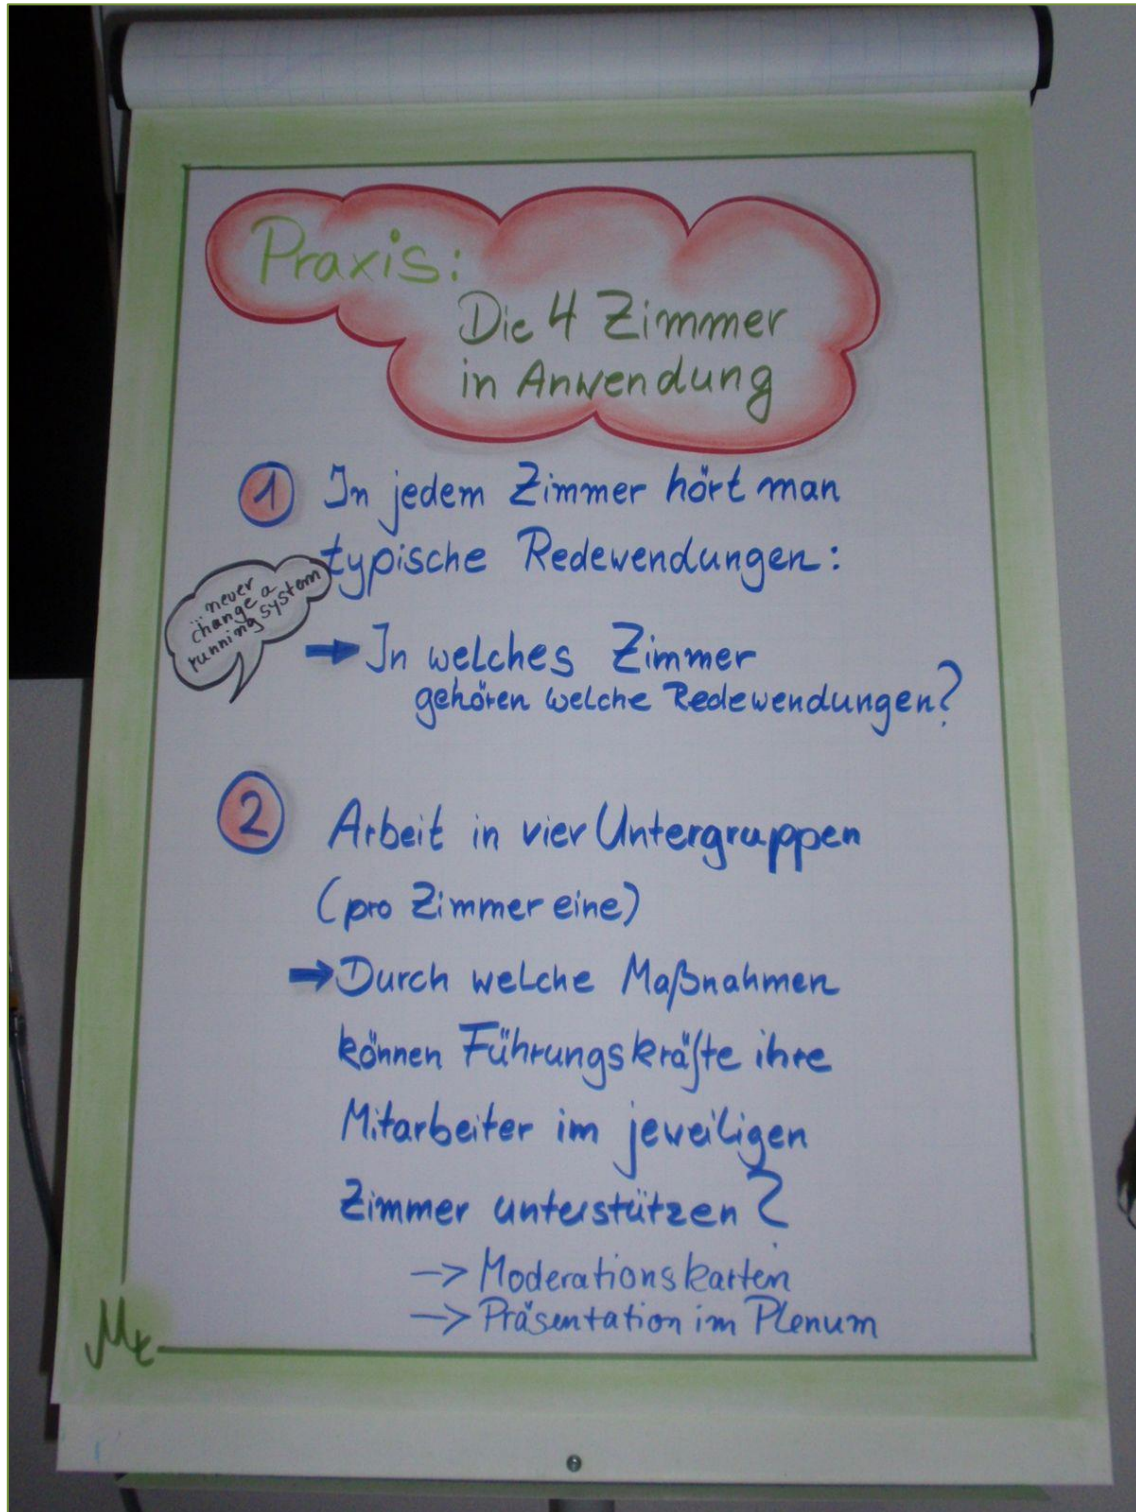 Praxis:
Die 4 Zimmer
in Anwendung
1 In jedem Zimmer hört man
typische Redewendungen:
...never
change a
running system
→ In welches Zimmer
gehören welche Redewendungen?
2 Arbeit in vier Untergruppen
(pro Zimmer eine)
→ Durch welche Maßnahmen
können Führungskräfte ihre
Mitarbeiter im jeweiligen
Zimmer unterstützen?
-> Moderationskarten
-> Präsentation im Plenum